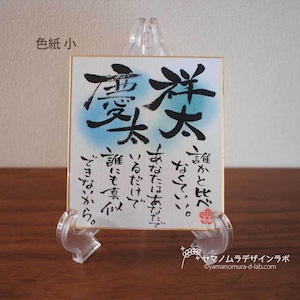 色紙 小
祥太
慶太
誰かと比べ
なくていい。
あなたはあなたで
いるだけで
誰にも真似
できないから。
ヤマノムラデザインラボ
©yamanomura-d-lab.com